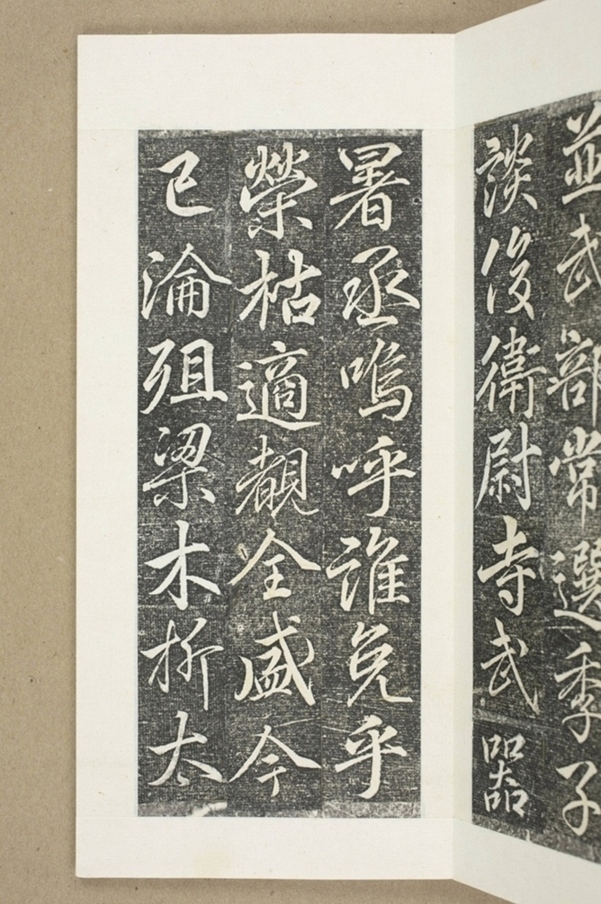 並武部常選季子
談後衛尉寺武器
署丞嗚呼誰免乎
榮枯適覩全盛今
已淪殂梁木折太